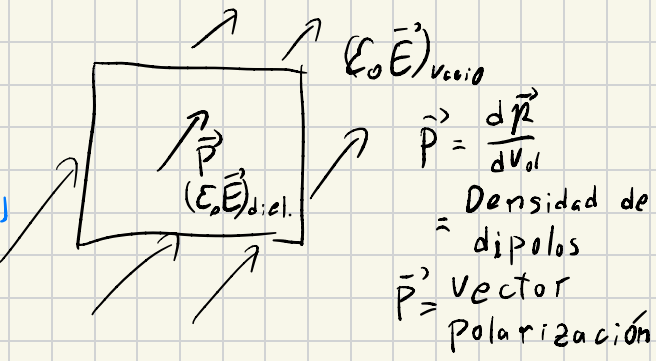 (ε₀E⃗)vacio
P⃗ = dp⃗/dVol
P⃗
(ε₀E⃗)diel.
= Densidad de
dipolos
P⃗ = vector
polarización